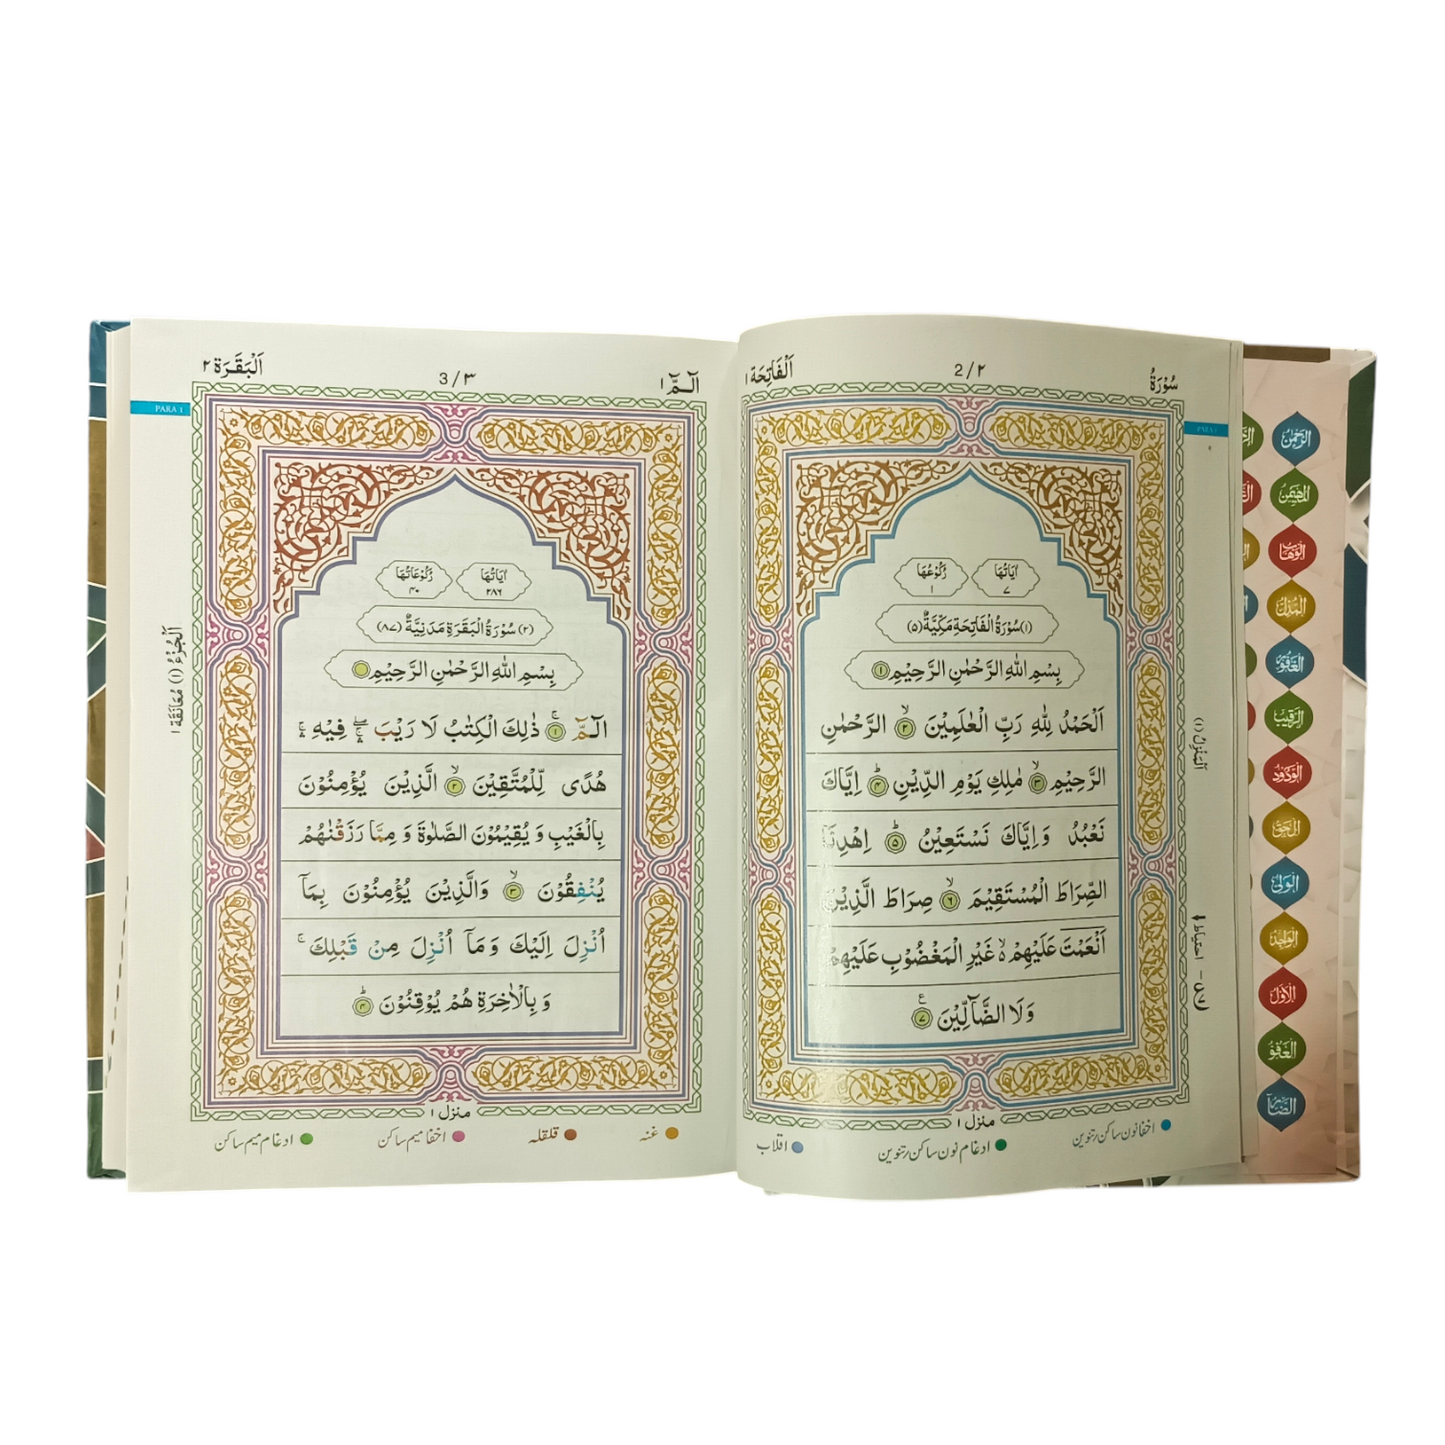 سُوْرَةُ
2/۲
اَلْفَاتِحَة ۱
PARA 1
اٰيَاتُهَا
۷
رُكُوْعُهَا
۱
(۱) سُوْرَةُ الْفَاتِحَةِ مَكِّيَّةٌ (۵)
بِسْمِ اللّٰهِ الرَّحْمٰنِ الرَّحِيْمِ ۱
اَلْحَمْدُ لِلّٰهِ رَبِّ الْعٰلَمِيْنَ ۙ ۲ الرَّحْمٰنِ
الرَّحِيْمِ ۙ ۳ مٰلِكِ يَوْمِ الدِّيْنِ ؕ ۴ اِيَّاكَ
نَعْبُدُ وَاِيَّاكَ نَسْتَعِيْنُ ؕ ۵ اِهْدِنَا
الصِّرَاطَ الْمُسْتَقِيْمَ ۙ ۶ صِرَاطَ الَّذِيْنَ
اَنْعَمْتَ عَلَيْهِمْ ۙ۬ غَيْرِ الْمَغْضُوْبِ عَلَيْهِمْ
وَلَا الضَّآلِّيْنَ ۷ ع
اَلْمَنْزِلُ (۱)
احتیاط
منزل ۱
اخفا نون ساکن رتنوین
ادغام نون ساکن رتنوین
اقلاب
الٓمّٓ ۱
3/۳
اَلْبَقَرَة ۲
PARA 1
اٰيَاتُهَا
۲۸۶
رُكُوْعَاتُهَا
۴۰
(۲) سُوْرَةُ الْبَقَرَةِ مَدَنِيَّةٌ (۸۷)
بِسْمِ اللّٰهِ الرَّحْمٰنِ الرَّحِيْمِ
الٓمّٓ ۚ ۱ ذٰلِكَ الْكِتٰبُ لَا رَيْبَ ۛۖ فِيْهِ ۛۚ
هُدًى لِّلْمُتَّقِيْنَ ۙ ۲ الَّذِيْنَ يُؤْمِنُوْنَ
بِالْغَيْبِ وَيُقِيْمُوْنَ الصَّلٰوةَ وَمِمَّا رَزَقْنٰهُمْ
يُنْفِقُوْنَ ۙ ۳ وَالَّذِيْنَ يُؤْمِنُوْنَ بِمَآ
اُنْزِلَ اِلَيْكَ وَمَآ اُنْزِلَ مِنْ قَبْلِكَ ۚ
وَبِالْاٰخِرَةِ هُمْ يُوْقِنُوْنَ ؕ ۴
اَلْجُزْءُ (۱)
مُعَانَقَة ۱
منزل ۱
غنه
قلقله
اخفا میم ساکن
ادغام میم ساکن
الرَّحْمٰنُ
الْمُهَيْمِنُ
الْوَهَّابُ
الْمُذِلُّ
الْغَفُوْرُ
الرَّقِيْبُ
الْوَدُوْدُ
الْحَقُّ
الْوَلِيُّ
الْوَاجِدُ
الْاَوَّلُ